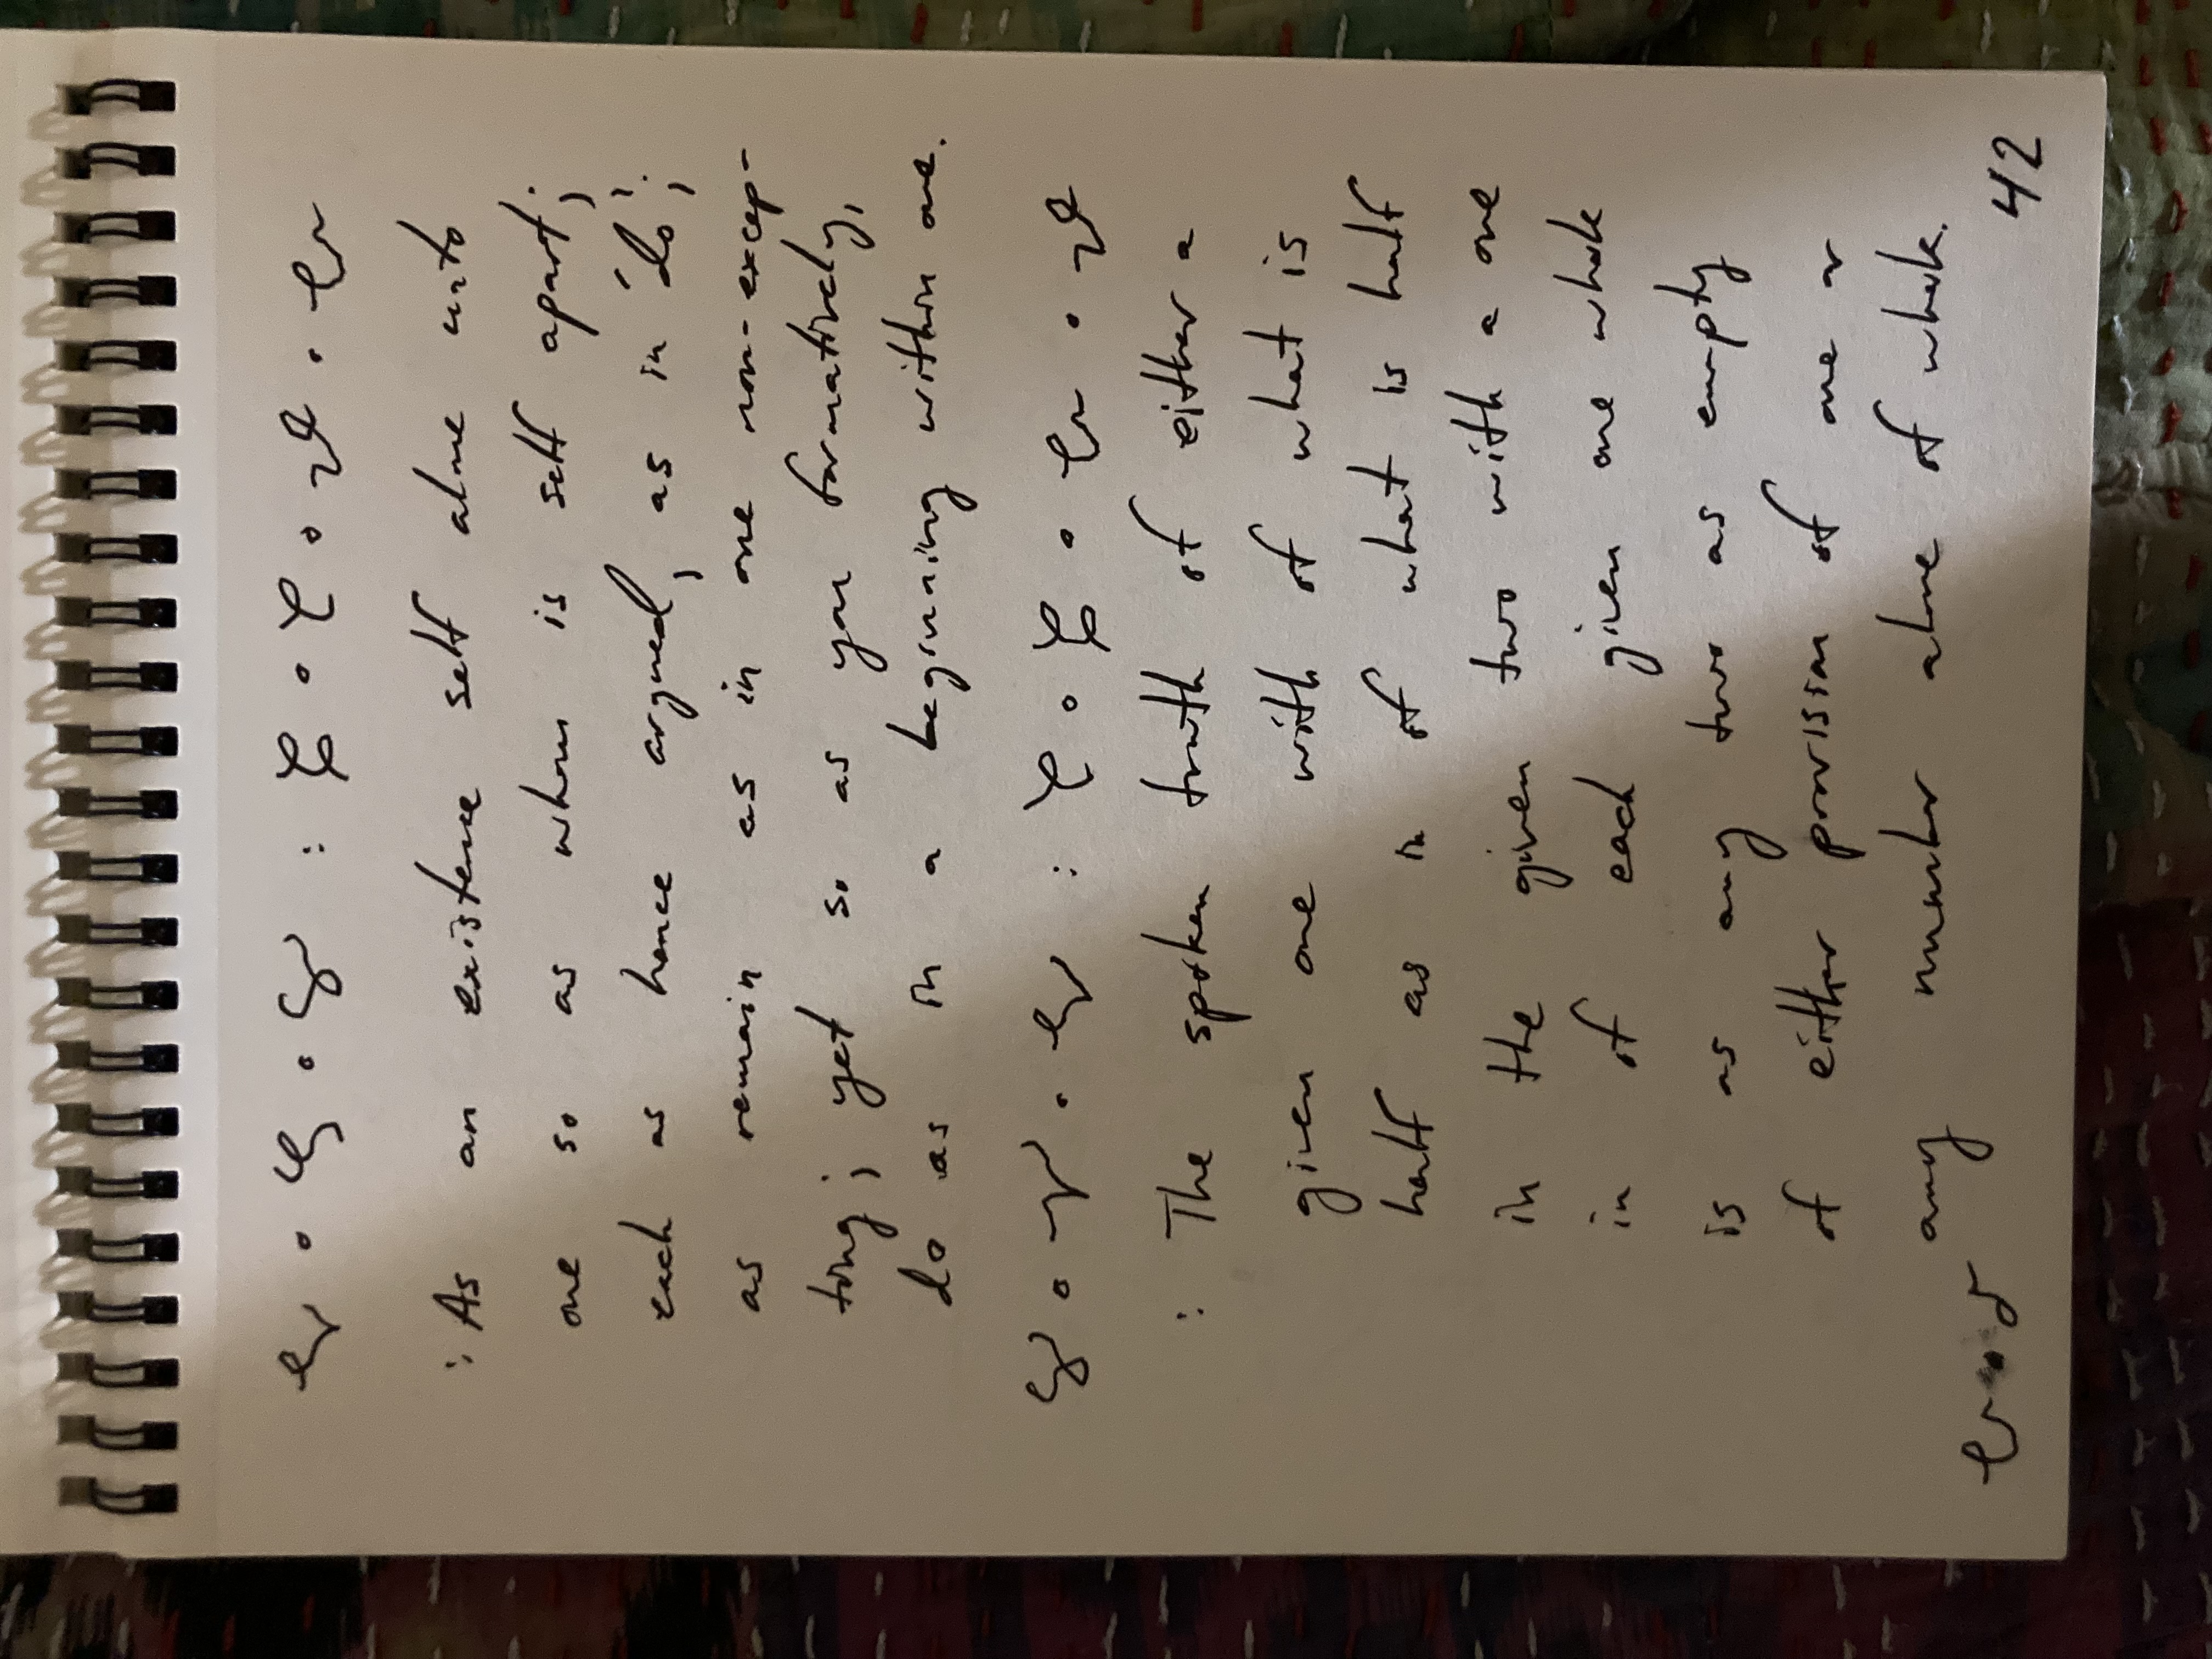 : As an existence self alone unto
one so as whom is self apart;
each as hence argued, as in 'do';
as remain as in one non-excep-
ting; yet so as you formatively,
do as in a beginning within one.
: The spoken truth of either a
given one with of what is
half as in of what is half
in the given two with a one
in of each given one whole
is as any two as empty
of either provision of one or
any number alone of whole.
42